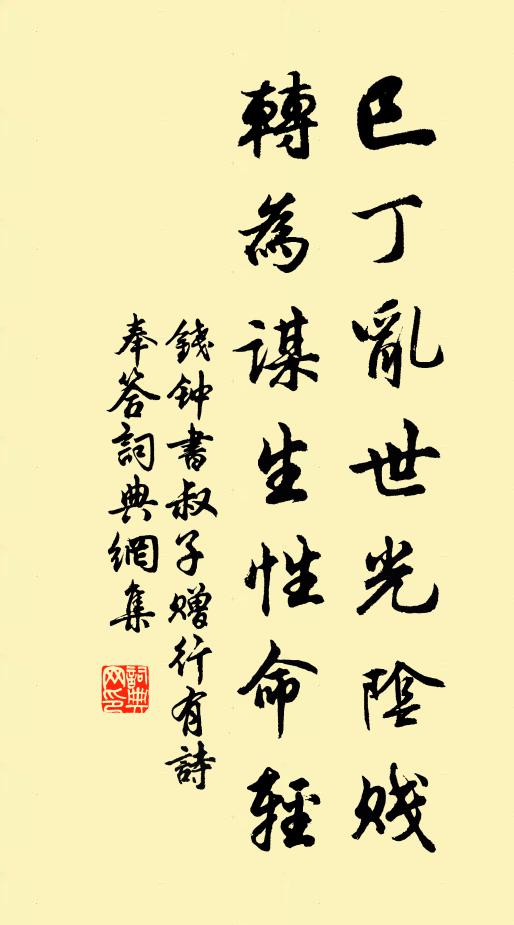 已丁亂世光陰賤
轉為謀生性命輕
錢鍾書叔子贈行有詩
奉答詞典網集
詞典網印